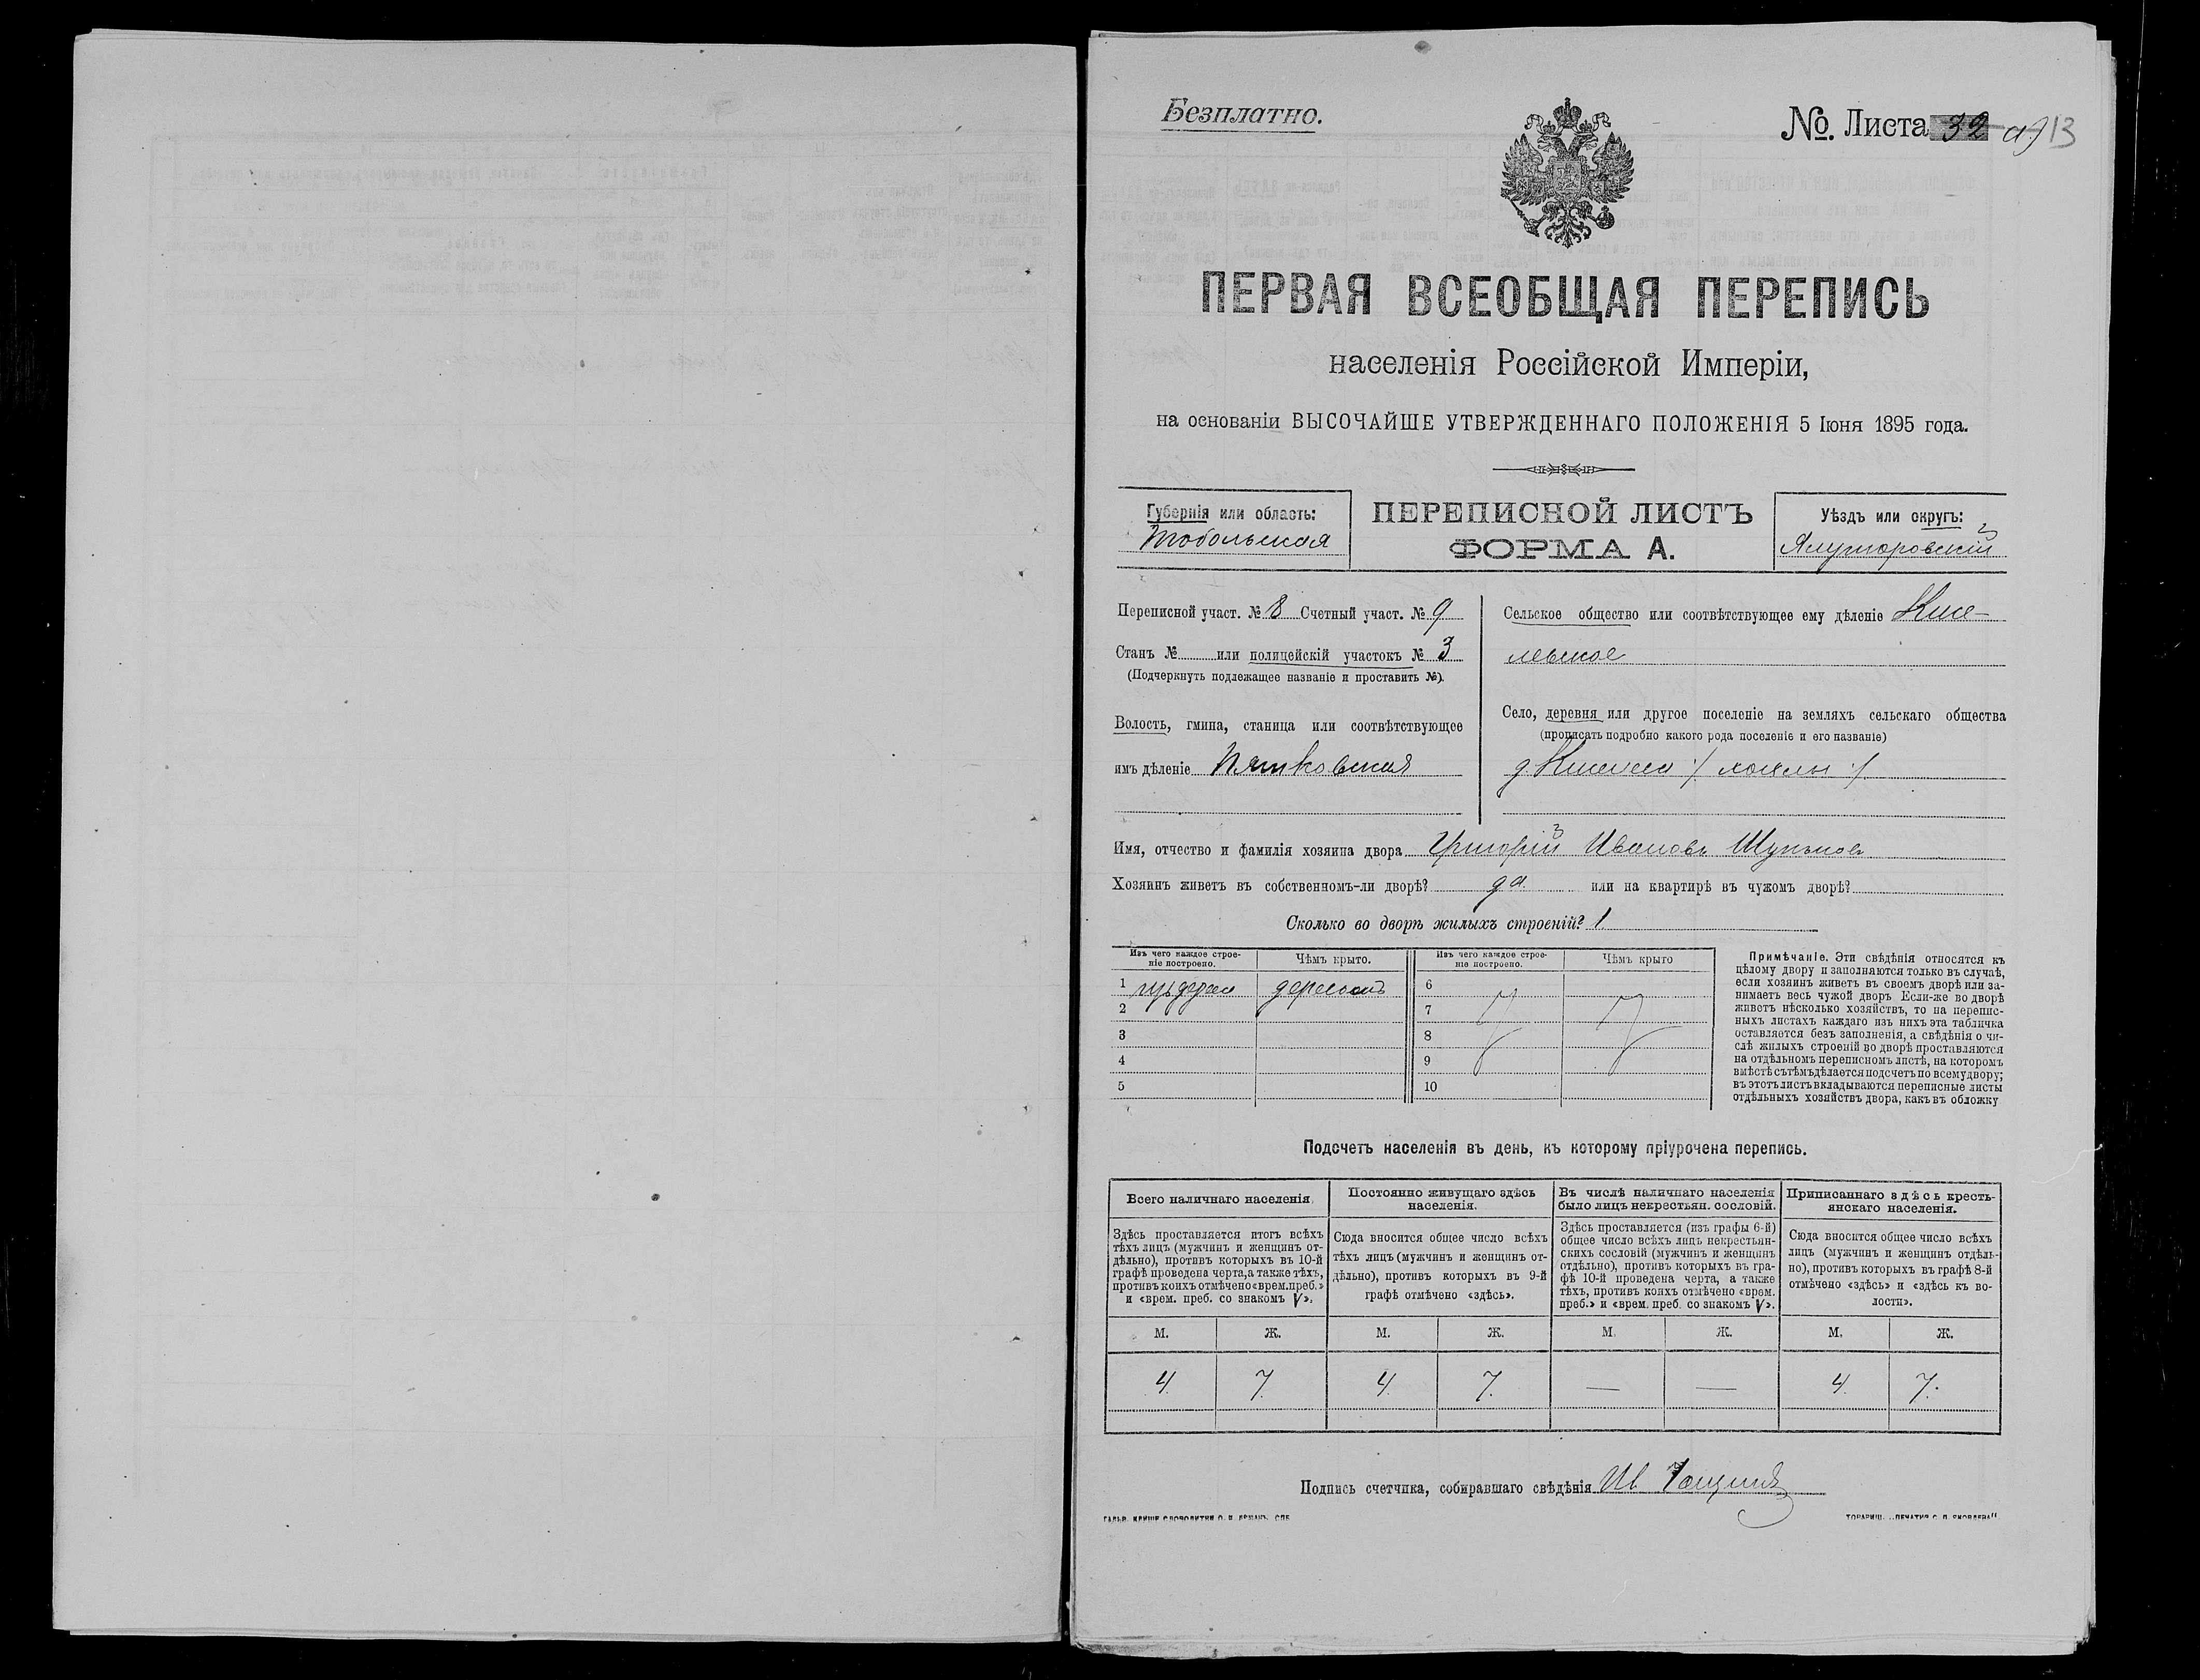 Безплатно.
№ Листа 32 а) 13
ПЕРВАЯ ВСЕОБЩАЯ ПЕРЕПИСЬ
населенія Россійской Имперіи,
на основаніи ВЫСОЧАЙШЕ УТВЕРЖДЕННАГО ПОЛОЖЕНІЯ 5 Іюня 1895 года.
Губернія или область:
Тобольская
ПЕРЕПИСНОЙ ЛИСТЪ
ФОРМА А.
Уѣздъ или округъ:
Ялуторовскій
Переписной участ. № 8 Счетный участ. № 9
Станъ № или полицейскій участокъ № 3
(Подчеркнуть подлежащее названіе и проставить №).
Волость, гмина, станица или соотвѣтствующее
имъ дѣленіе Пятковская
Сельское общество или соотвѣтствующее ему дѣленіе Кисе-
левское
Село, деревня или другое поселеніе на земляхъ сельскаго общества
(прописать подробно какого рода поселеніе и его названіе)
д Киселева
Имя, отчество и фамилія хозяина двора Григорій Ивановъ
Хозяинъ живетъ въ собственномъ-ли дворѣ? да или на квартирѣ въ чужомъ дворѣ?
Сколько во дворѣ жилыхъ строеній? 1
Изъ чего каждое строе-
ніе построено.
Чѣмъ крыто.
Изъ чего каждое строе-
ніе построено.
Чѣмъ крыто
1 изъ дерева деревомъ 6
2 7
3 8
4 9
5 10
Примѣчаніе. Эти свѣдѣнія относятся къ
цѣлому двору и заполняются только въ случаѣ,
если хозяинъ живетъ въ своемъ дворѣ или за-
нимаетъ весь чужой дворъ Если-же во дворѣ
живетъ нѣсколько хозяйствъ, то на перепис-
ныхъ листахъ каждаго изъ нихъ эта табличка
оставляется безъ заполненія, а свѣдѣнія о чи-
слѣ жилыхъ строеній во дворѣ проставляются
на отдѣльномъ переписномъ листѣ, на которомъ
вмѣстѣ сътѣмъ дѣлается подсчетъ по всему двору;
въ этотъ листъ вкладываются переписные листы
отдѣльныхъ хозяйствъ двора, какъ въ обложку
Подсчетъ населенія въ день, къ которому пріурочена перепись.
Всего наличнаго населенія.
Здѣсь проставляется итогъ всѣхъ
тѣхъ лицъ (мужчинъ и женщинъ от-
дѣльно), противъ которыхъ въ 10-й
графѣ проведена черта, а также тѣхъ,
противъ коихъ отмѣчено «врем.преб.»
и «врем. преб. со знакомъ V».
Постоянно живущаго здѣсь
населенія.
Сюда вносится общее число всѣхъ
тѣхъ лицъ (мужчинъ и женщинъ от-
дѣльно), противъ которыхъ въ 9-й
графѣ отмѣчено «здѣсь».
Въ числѣ наличнаго населенія
было лицъ некрестьян. сословій.
Здѣсь проставляется (изъ графы 6-й)
общее число всѣхъ лицъ некрестьян-
скихъ сословій (мужчинъ и женщинъ
отдѣльно), противъ которыхъ въ гра-
фѣ 10-й проведена черта, а также
тѣхъ, противъ коихъ отмѣчено «врем.
преб.» и «врем. преб. со знакомъ V».
Приписаннаго здѣсь кресть-
янскаго населенія.
Сюда вносится общее число всѣхъ
лицъ (мужчинъ и женщинъ отдѣль-
но), противъ которыхъ въ графѣ 8-й
отмѣчено «здѣсь» и «здѣсь къ во-
лости».
М. Ж. М. Ж. М. Ж. М. Ж.
4. 7. 4. 7. — — 4. 7.
Подпись счетчика, собиравшаго свѣдѣнія Ив
ТОВАРИЩ. „ПЕЧАТНЯ С. П. ЯКОВЛЕВА“